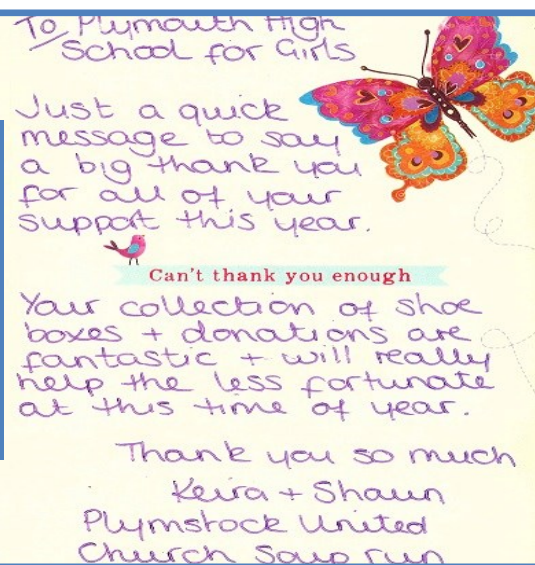 To Plymouth High
School for Girls
Just a quick
message to say
a big thank you
for all of your
support this year.
Can't thank you enough
Your collection of shoe
boxes + donations are
fantastic + will really
help the less fortunate
at this time of year.
Thank you so much
Keira + Shaun
Plymstock United
Church Soup run